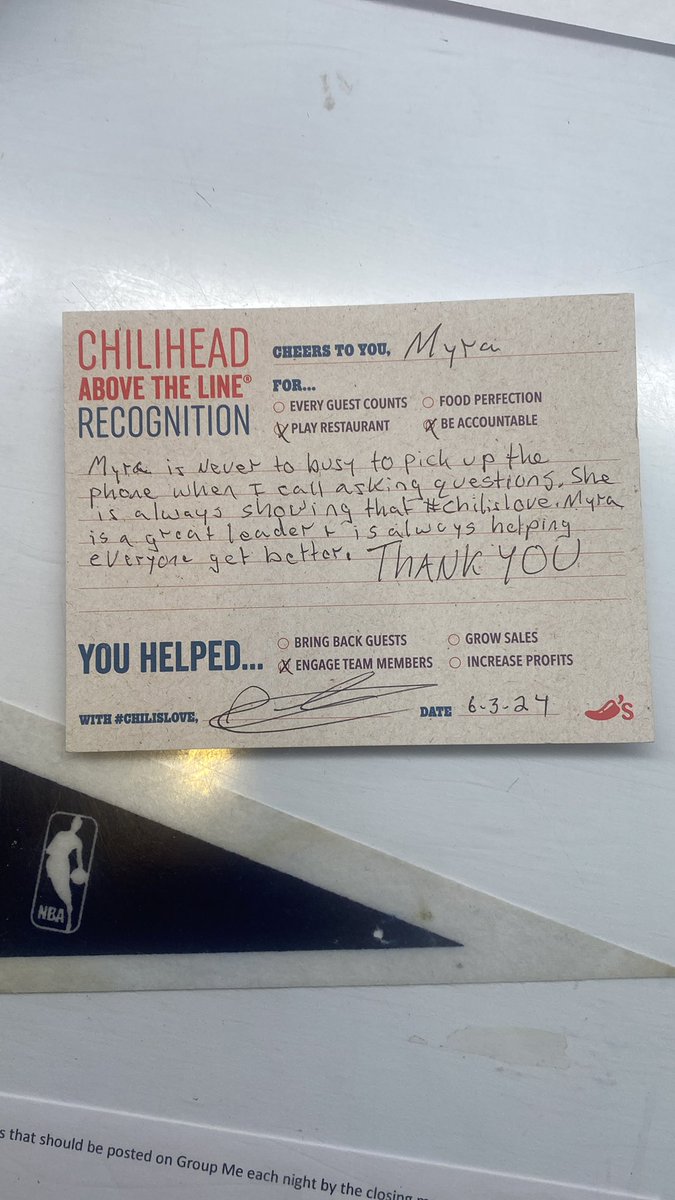 CHILIHEAD
ABOVE THE LINE®
RECOGNITION
CHEERS TO YOU, Myra
FOR...
EVERY GUEST COUNTS FOOD PERFECTION
PLAY RESTAURANT BE ACCOUNTABLE
Myra is never to busy to pick up the
phone when I call asking questions. She
is always showing that #chilislove. Myra
is a great leader + is always helping
everyone get better. THANK YOU
YOU HELPED...
BRING BACK GUESTS GROW SALES
ENGAGE TEAM MEMBERS INCREASE PROFITS
WITH #CHILISLOVE, DATE 6-3-24
's
NBA
s that should be posted on Group Me each night by the closing